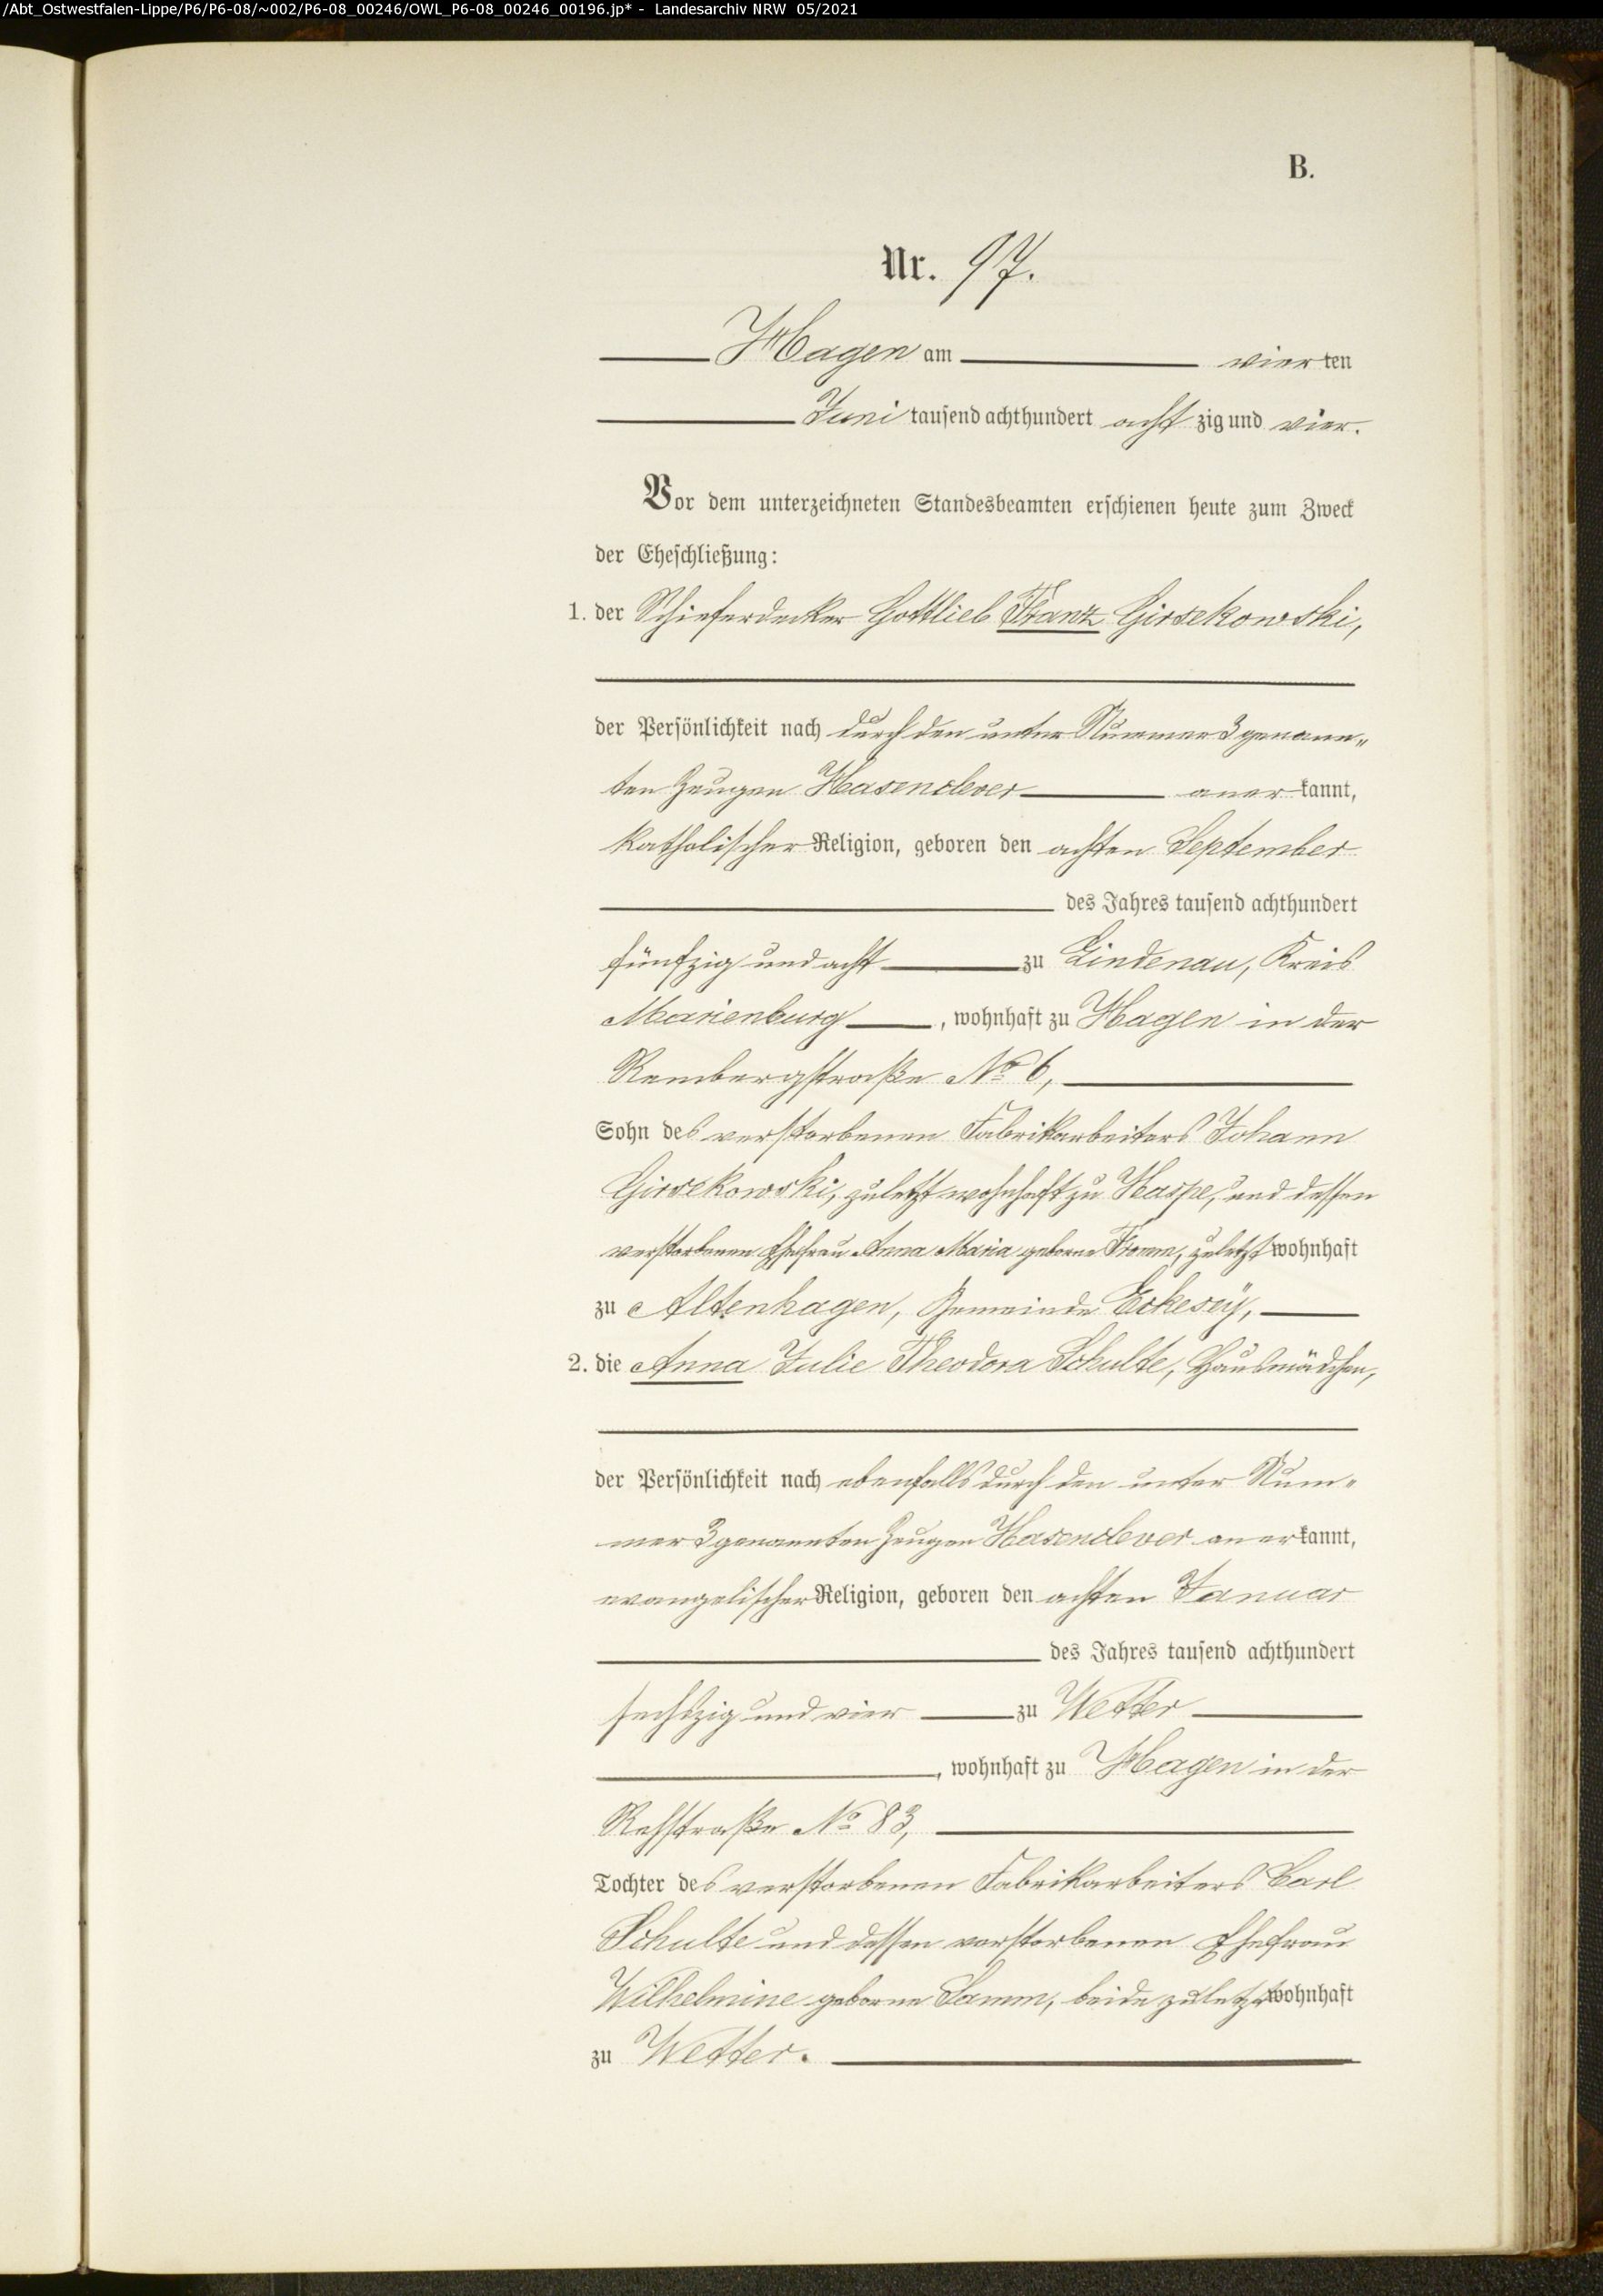 /Abt_Ostwestfalen-Lippe/P6/P6-08/~002/P6-08_00246/OWL_P6-08_00246_00196.jp* - Landesarchiv NRW 05/2021
B.
Nr. 97.
Hagen am vierten
Juni tausend achthundert acht zig und vier.
Vor dem unterzeichneten Standesbeamten erschienen heute zum Zweck
der Eheschließung:
1. der Schieferdecker Gottlieb Franz Girsekowski,
der Persönlichkeit nach durch den unter Nummer 3 genann-
ten Zeugen Hasenclever aner kannt,
katholischer Religion, geboren den achten September
des Jahres tausend achthundert
fünfzig und acht zu Lindenau, Kreis
Marienburg, wohnhaft zu Hagen in der
Rembergstraße No 6,
Sohn des verstorbenen Fabrikarbeiters Johann
Girsekowski, zuletzt wohnhaft zu Haspe, und dessen
verstorbenen Ehefrau Anna Maria geborne Fromm, zuletzt wohnhaft
zu Altenhagen, Gemeinde Eckesey,
2. die Anna Julie Theodora Schulte, Hausmädchen,
der Persönlichkeit nach ebenfalls durch den unter Num-
mer 3 genannten Zeugen Hasenclever aner kannt,
evangelischer Religion, geboren den achten Januar
des Jahres tausend achthundert
sechszig und vier zu Wetter
, wohnhaft zu Hagen in der
Rehstraße No 83,
Tochter des verstorbenen Fabrikarbeiters Carl
Schulte und dessen verstorbenen Ehefrau
Wilhelmine geborne Lamm, beide zuletzt wohnhaft
zu Wetter.